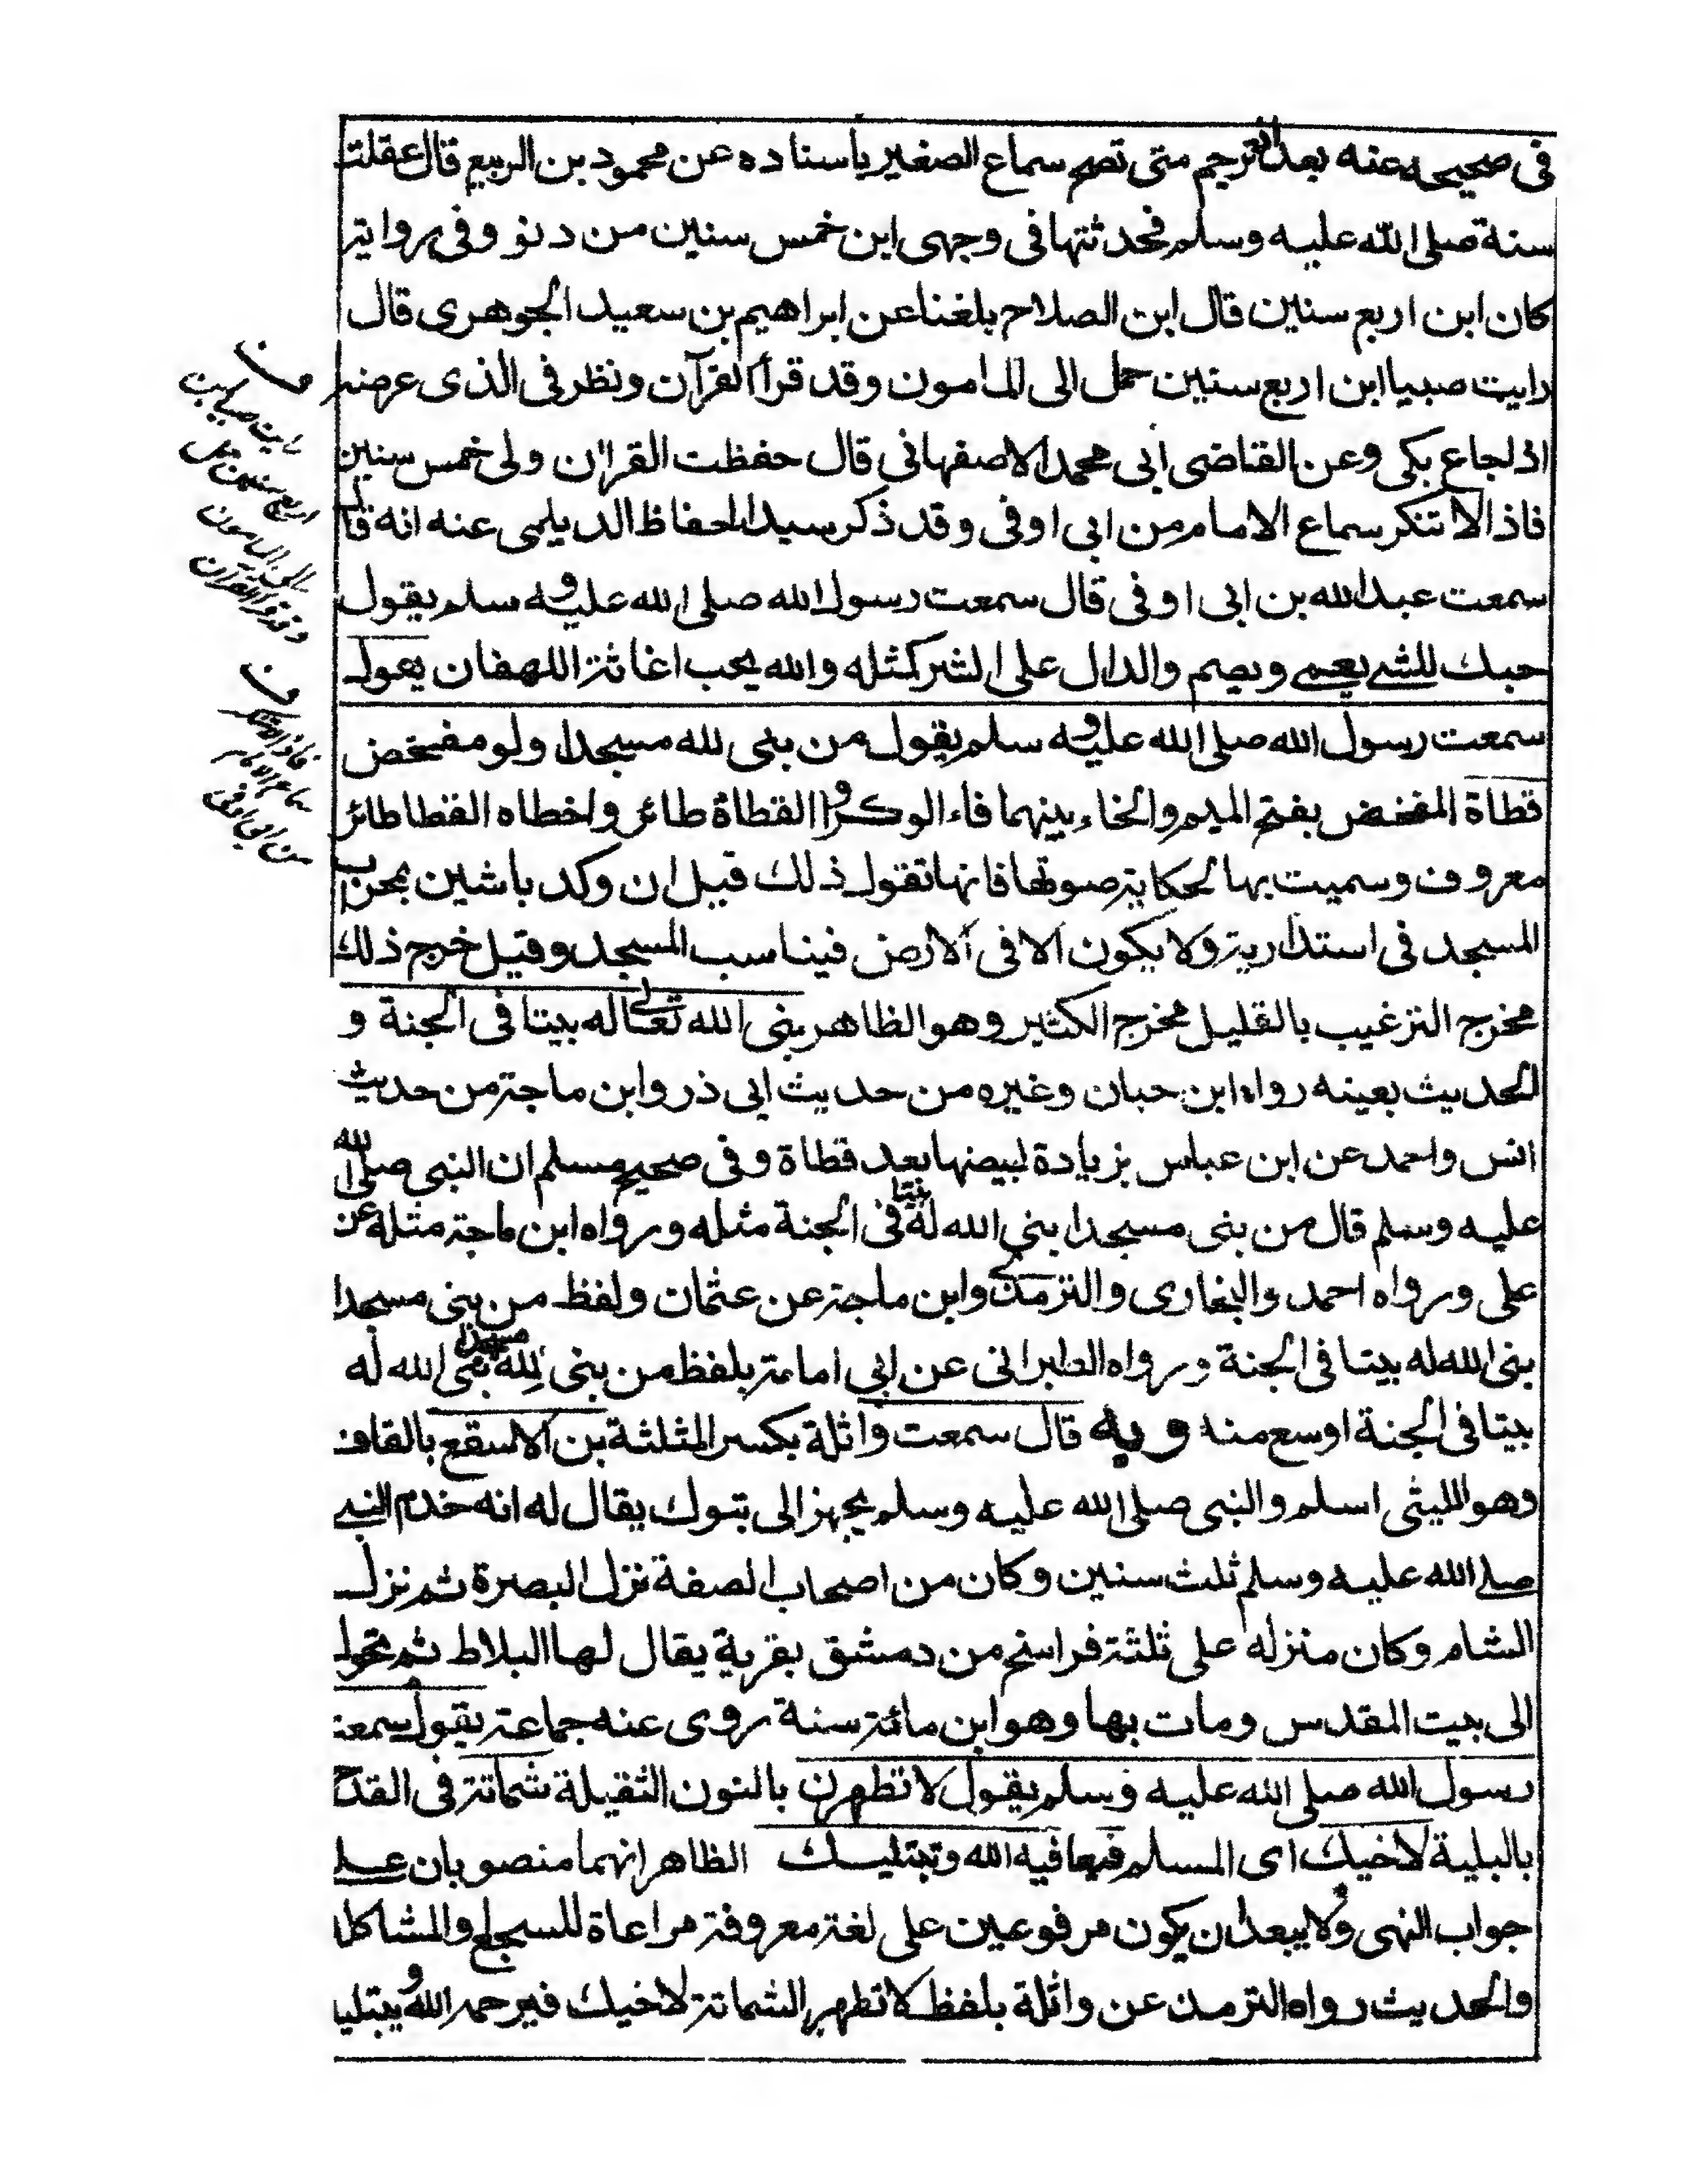 فى صحيحه عنه بعد الترجم متى تصح سماع الصغير باسناده عن محمود بن الربيع قال عقلت
سنة صلى الله عليه وسلم فحدثتها فى وجهى ابن خمس سنين من دنو وفى رواية
كان ابن اربع سنين قال ابن الصلاح بلغنا عن ابراهيم بن سعيد الجوهرى قال
رايت صبيا ابن اربع سنين حمل الى المامون وقد قرأ القرآن ونظر فى الذى عرضه
اذ الجاع بكى وعن القاضى ابى محمد الاصفهانى قال حفظت القرآن ولى خمس سنين
فاذا لا تنكر سماع الامام من ابى اوفى وقد ذكر سيد الحفاظ الديلمى عنه انه قال
سمعت عبد الله بن ابى اوفى قال سمعت رسول الله صلى الله عليه وسلم يقول
حبك للشئ يعمى ويصم والدال على الشر كمثله والله يحب اغاثة اللهفان يقول
سمعت رسول الله صلى الله عليه وسلم يقول من بنى لله مسجدا ولو مفخض
قطاة المفخض بفتح الميم والخاء بينهما فاء الوكر والقطاة طائر واخطاه القطا طائر
معروف وسميت بها لحكاية صوتها فانها تقول ذلك قيل ان وكد باشين بمحراب
المسجد فى استدارية ولا يكون الا فى الارض فيناسب المسجد وقيل خرج ذلك
مخرج الترغيب بالقليل مخرج الكثير وهو الظاهر بنى الله تعالى له بيتا فى الجنة و
الحديث بعينه رواه ابن حبان وغيره من حديث ابى ذر وابن ماجة من حديث
انس واحمد عن ابن عباس بزيادة لبيضها بعد قطاة وفى صحيح مسلم ان النبى صلى الله
عليه وسلم قال من بنى مسجدا بنى الله له بيتا فى الجنة مثله ورواه ابن ماجة مثله عن
على ورواه احمد والبخارى والترمذى وابن ماجة عن عثمان ولفظ من بنى مسجدا
بنى الله له بيتا فى الجنة ورواه الطبرانى عن ابى امامة بلفظ من بنى لله مسجدا بنى الله له
بيتا فى الجنة اوسع منه وبه قال سمعت واثلة بكسر المثلثة بن الاسقع بالقاف
وهو الليثى اسلم والنبى صلى الله عليه وسلم يجهز الى تبوك يقال له انه خدم النبى
صلى الله عليه وسلم ثلث سنين وكان من اصحاب الصفة نزل البصرة ثم نزل
الشام وكان منزله على ثلثة فراسخ من دمشق بقرية يقال لها البلاط ثم تحول
الى بيت المقدس ومات بها وهو ابن مائة سنة روى عنه جماعة يقول سمعت
رسول الله صلى الله عليه وسلم يقول لا تظهرن بالنون الثقيلة شماتة فى القدح
بالبلية لاخيك اى المسلم فيعافيه الله ويبتليك الظاهر انهما منصوبان على
جواب النهى ولا يبعد ان يكون مرفوعين على لغة معروفة مراعاة للسجع والمشاكل
والحديث رواه الترمذ عن واثلة بلفظ لا تظهر الشماتة لاخيك فيرحمه الله ويبتليك
ف
رايت صبيا ابن
اربع سنين حمل
الى المامون
وقد قرأ القرآن
ف
فاذا لا تنكر
سماع الامام
من ابى اوفى